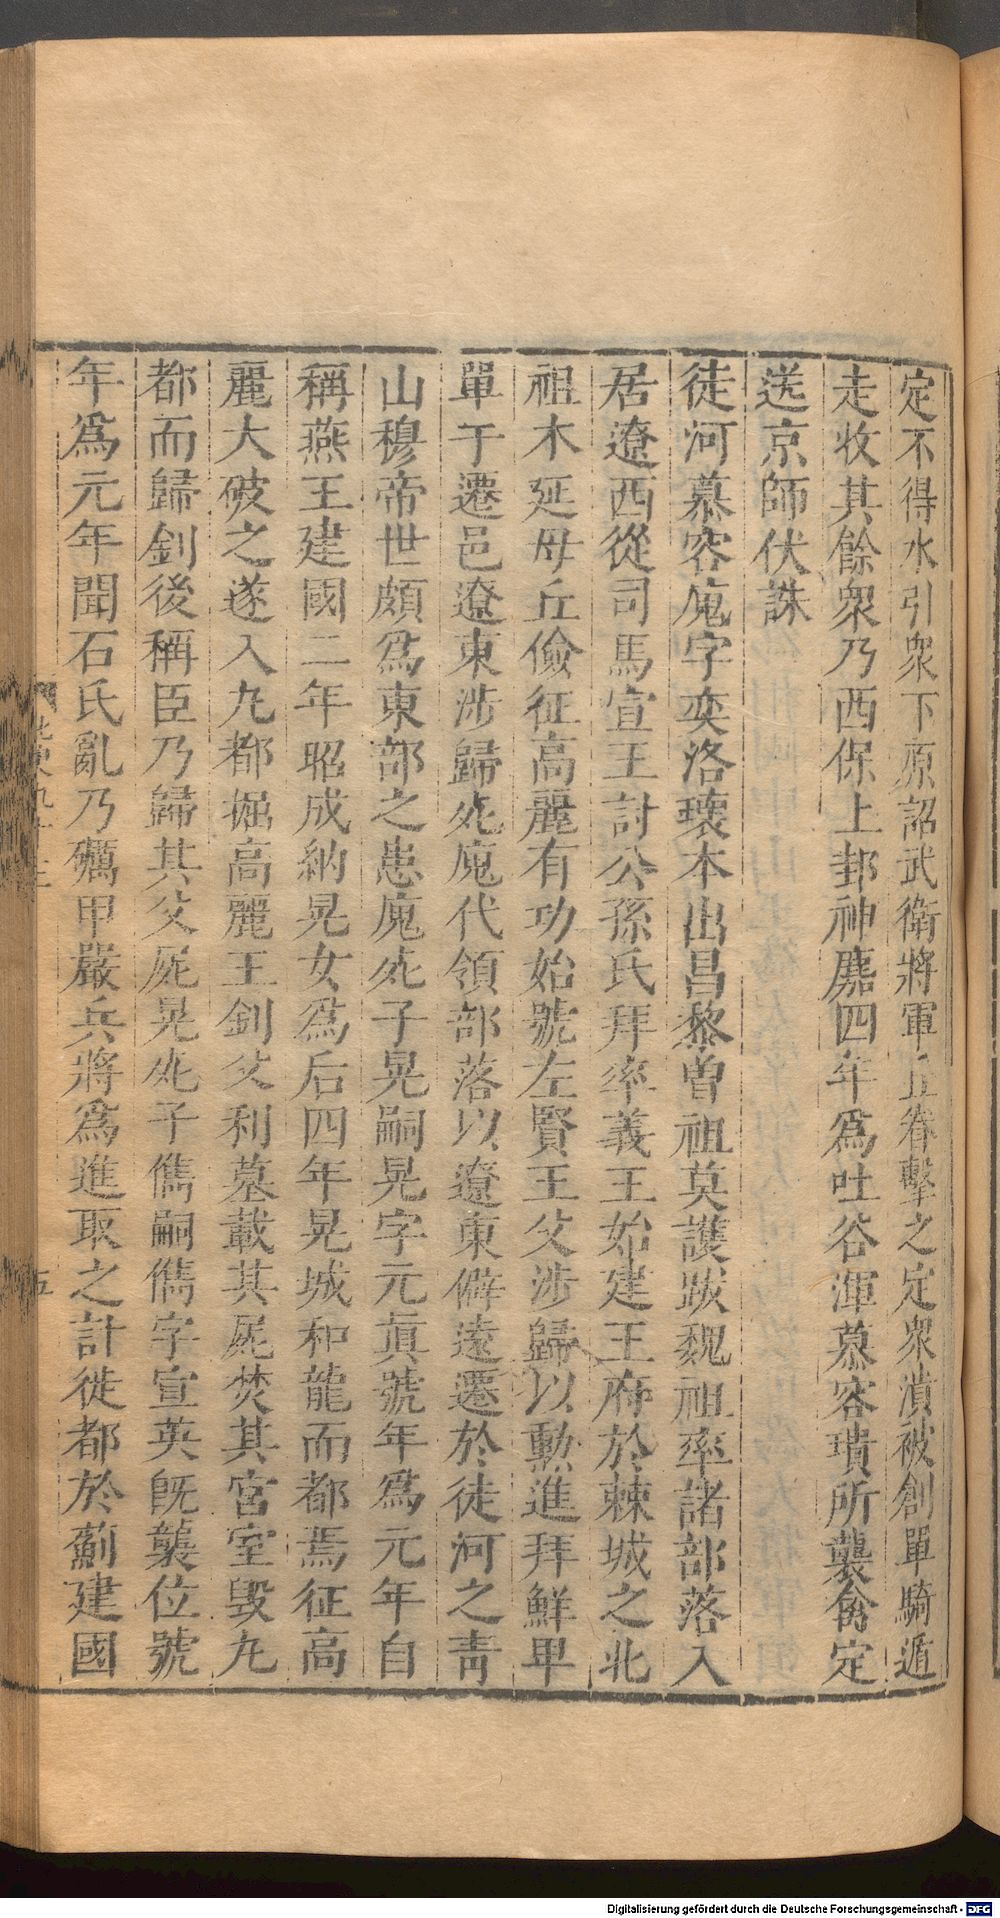 定不得水引衆下原詔武衛將軍丘眷擊之定衆潰被創單騎遁
走收其餘衆乃西保上邽神䴥四年爲吐谷渾慕容璝所襲禽定
送京師伏誅
徒河慕容廆字奕洛瓌本出昌黎曾祖莫護跋魏祖率諸部落入
居遼西從司馬宣王討公孫氏拜率義王始建王府於棘城之北
祖木延毋丘儉征高麗有功始號左賢王父涉歸以勳進拜鮮卑
單于遷邑遼東涉歸死廆代領部落以遼東僻遠遷於徒河之靑
山穆帝世頗爲東部之患廆死子晃嗣晃字元眞號年爲元年自
稱燕王建國二年昭成納晃女爲后四年晃城和龍而都焉征高
麗大破之遂入九都掘高麗王釗父利墓載其屍焚其宮室毁九
都而歸釗後稱臣乃歸其父屍晃死子儁嗣儁字宣英旣襲位號
年爲元年聞石氏亂乃礪甲嚴兵將爲進取之計徙都於薊建國
五
Digitalisierung gefördert durch die Deutsche Forschungsgemeinschaft - DFG